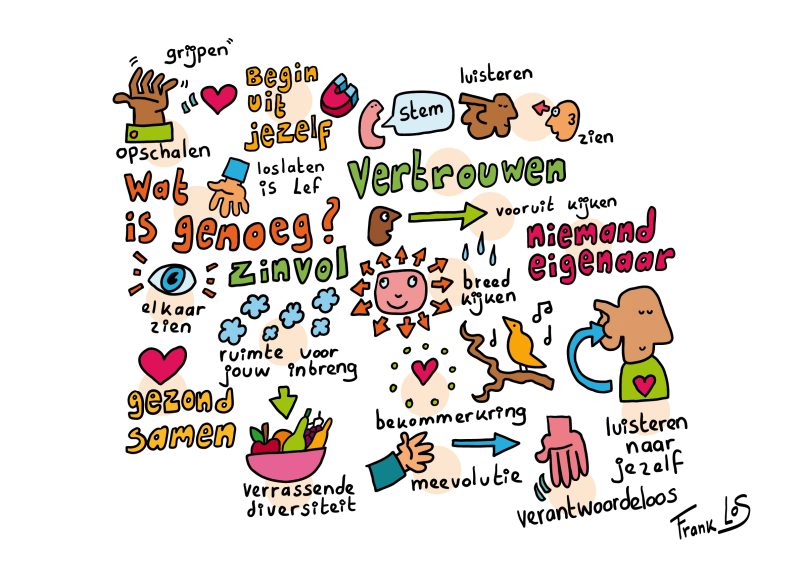 grijpen"
opschalen
Begin
uit
jezelf
stem
luisteren
zien
Wat
is genoeg?
loslaten
is Lef
Vertrouwen
vooruit kijken
niemand
eigenaar
zinvol
elkaar
zien
breed
kijken
ruimte voor
jouw inbreng
gezond
samen
bekommerkring
luisteren
naar
jezelf
verrassende
diversiteit
meevolutie
verantwoordeloos
Frank Los